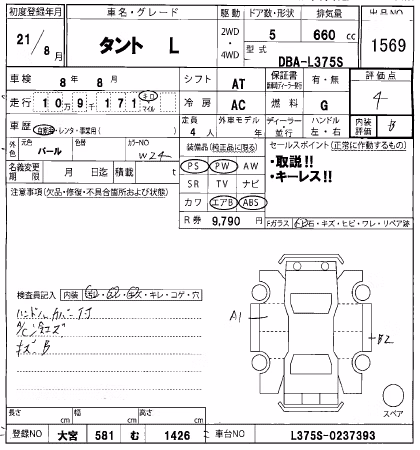 初度登録年月
車名・グレード
駆動
ドア数・形状
排気量
出品NO
21/8月
タント L
2WD・4WD
5
660 cc
1569
型式
DBA-L375S
車検
8年 8月
シフト
AT
保証書
有・無
評価点
4
走行
10万9千171
キロ
マイル
冷房
AC
燃料
G
車歴
自家用・レンタ・事業用( )
定員
4人
外車モデル
年
ディーラー・並行
ハンドル
左・右
内装評価
B
外色
元色
パール
色替
カラーNO
W24
装備品(純正品に限る)
セールスポイント(正常に作動するもの)
名義変更期限
月 日迄
積載
t
PS PW AW
・取説!!
注意事項(欠品・修復・不具合箇所および状態)
SR TV ナビ
・キーレス!!
カワ エアB ABS
R券 9,790 円
Fガラス
石・キズ・ヒビ・ワレ・リペア跡
検査員記入
内装
・キレ・コゲ・穴
ハンドルカバー付
A1
B2
キズB
スペア
長さ cm
幅 cm
高さ cm
登録NO
大宮 581 む 1426
車台NO
L375S-0237393